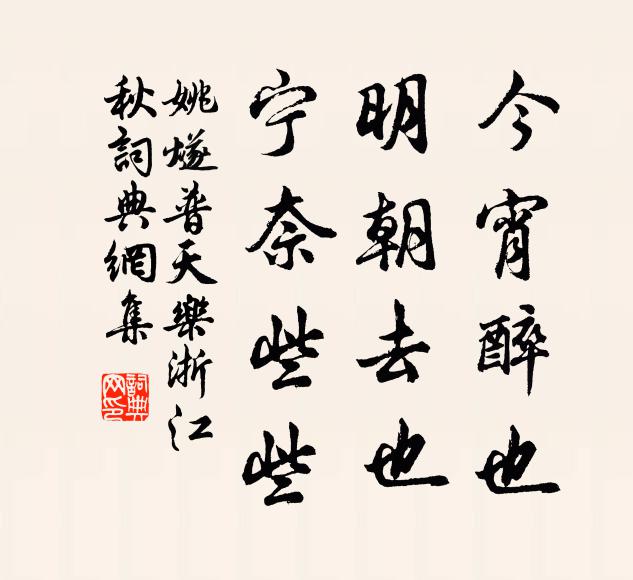 今宵醉也
明朝去也
宁奈些些
姚燧普天樂浙江
秋詞典網集
詞典网印